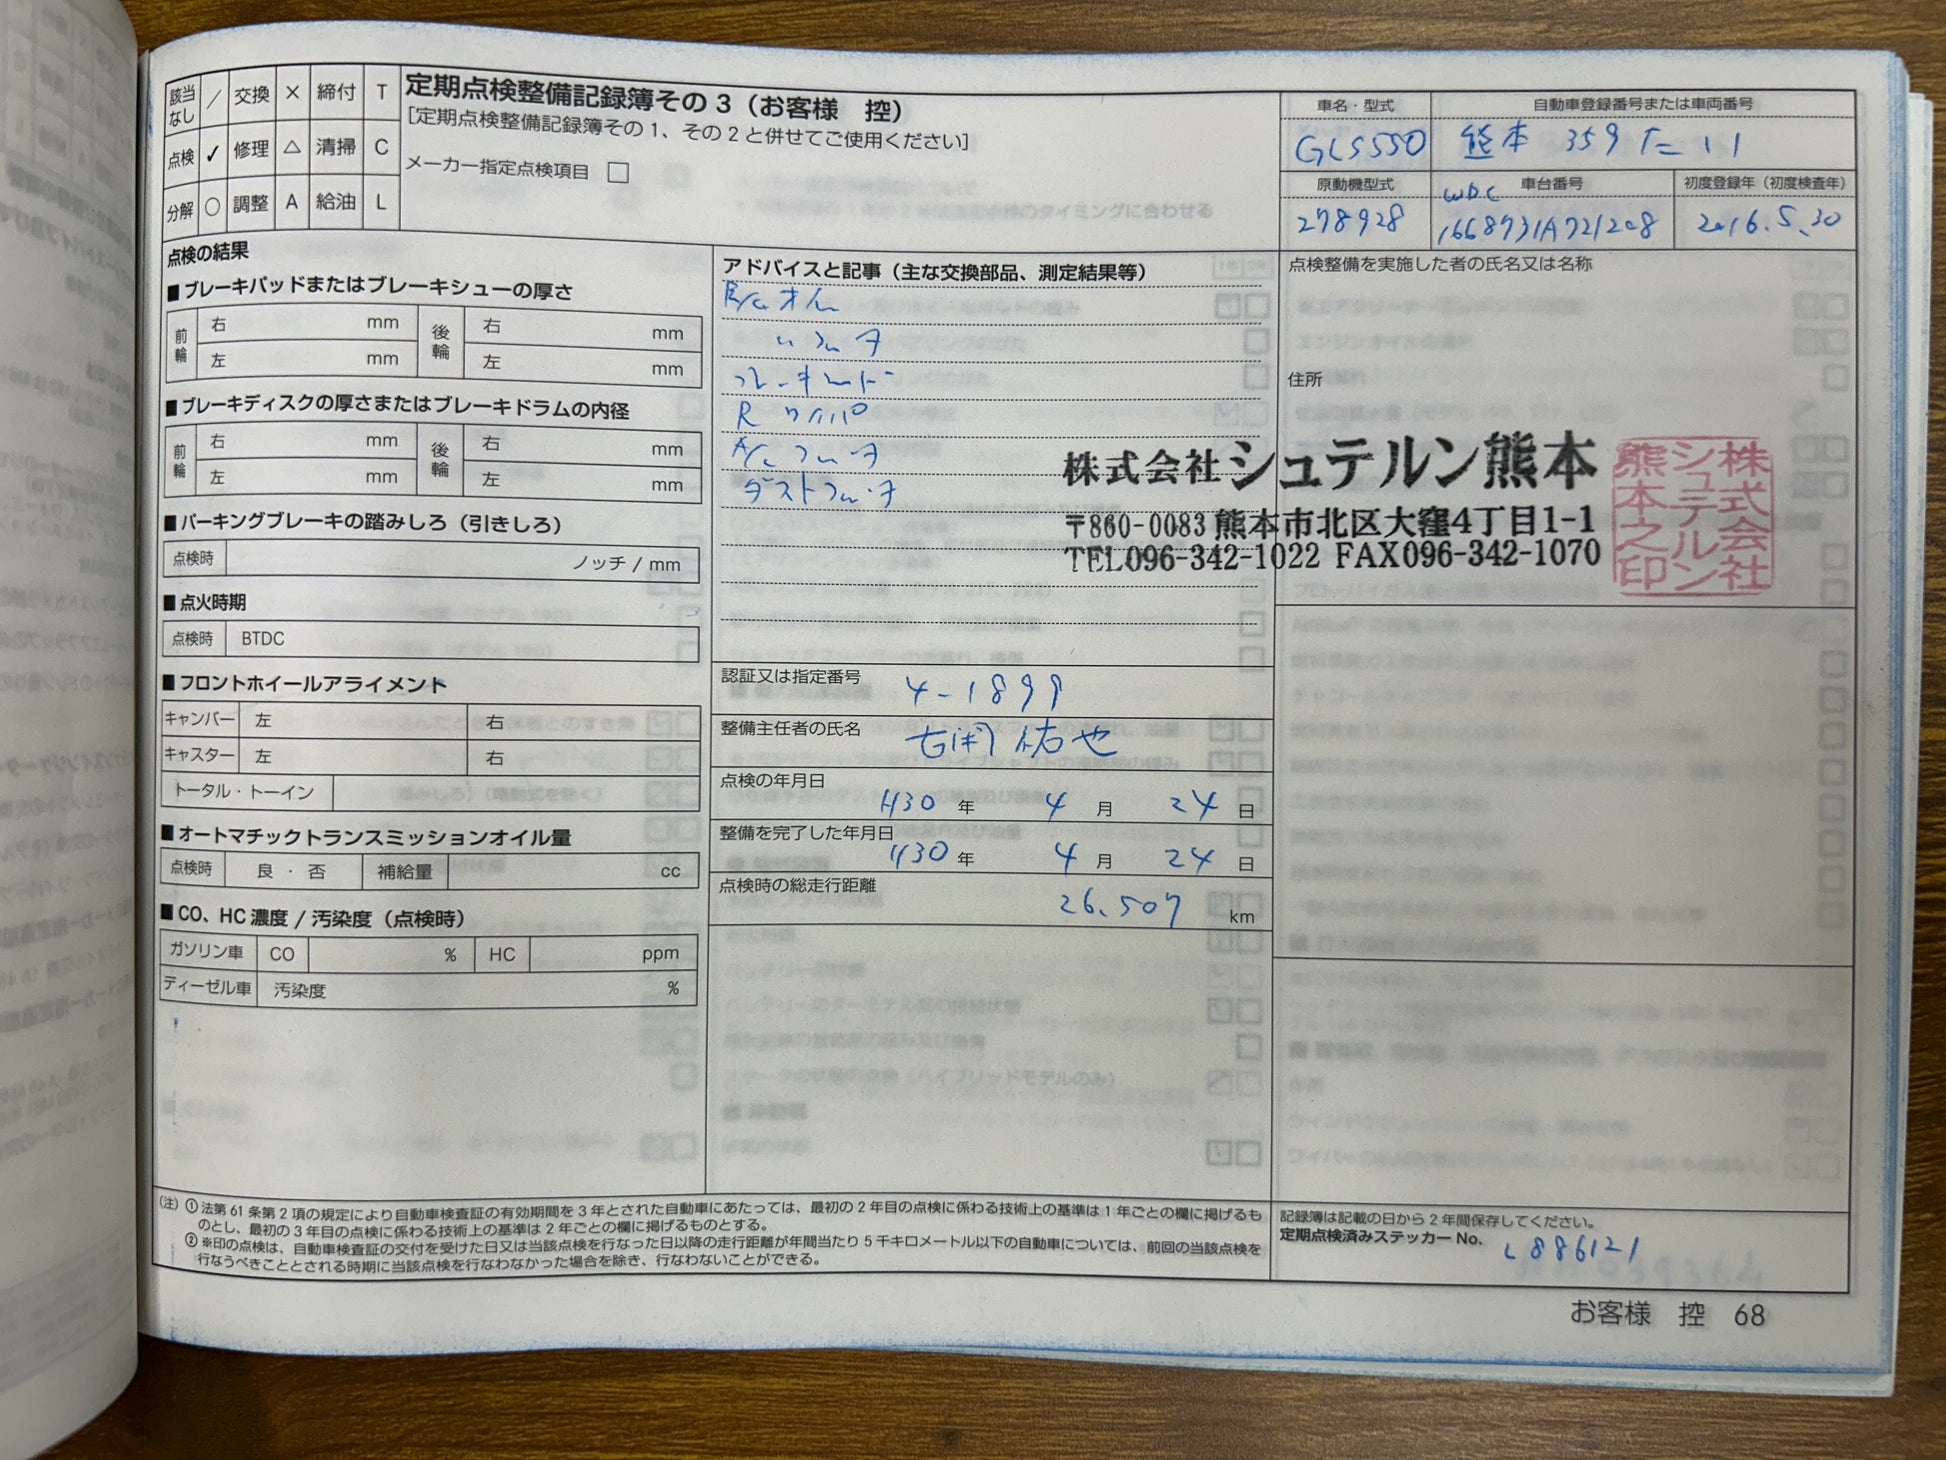 該当なし ／ 交換 × 締付 T
点検 ✓ 修理 △ 清掃 C
分解 ○ 調整 A 給油 L
定期点検整備記録簿その3（お客様 控）
[定期点検整備記録簿その1、その2と併せてご使用ください]
メーカー指定点検項目 □
車名・型式
GLS550
自動車登録番号または車両番号
熊本 359 11
原動機型式
278928
車台番号
WDC
初度登録年（初度検査年）
2016.5.30
点検の結果
■ブレーキパッドまたはブレーキシューの厚さ
前輪 右 mm 後輪 右 mm
左 mm 左 mm
■ブレーキディスクの厚さまたはブレーキドラムの内径
前輪 右 mm 後輪 右 mm
左 mm 左 mm
■パーキングブレーキの踏みしろ（引きしろ）
点検時 ノッチ / mm
■点火時期
点検時 BTDC
■フロントホイールアライメント
キャンバー 左 右
キャスター 左 右
トータル・トーイン
■オートマチックトランスミッションオイル量
点検時 良 ・ 否 補給量 cc
■CO、HC濃度 / 汚染度（点検時）
ガソリン車 CO % HC ppm
ディーゼル車 汚染度 %
アドバイスと記事（主な交換部品、測定結果等）
R ワイパ
A/C フィルタ
ダストフィルタ
認証又は指定番号
4-1899
整備主任者の氏名
祐也
点検の年月日
H30 年 4 月 24 日
整備を完了した年月日
H30 年 4 月 24 日
点検時の総走行距離
26,507 km
点検整備を実施した者の氏名又は名称
住所
株式会社シュテルン熊本
〒860-0083 熊本市北区大窪4丁目1-1
TEL096-342-1022 FAX096-342-1070
株式会社シュテルン熊本之印
(注) ①法第61条第2項の規定により自動車検査証の有効期間を3年とされた自動車にあたっては、最初の2年目の点検に係わる技術上の基準は1年ごとの欄に掲げるも
のとし、最初の3年目の点検に係わる技術上の基準は2年ごとの欄に掲げるものとする。
②※印の点検は、自動車検査証の交付を受けた日又は当該点検を行なった日以降の走行距離が年間当たり5千キロメートル以下の自動車については、前回の当該点検を
行なうべきこととされる時期に当該点検を行なわなかった場合を除き、行なわないことができる。
記録簿は記載の日から2年間保存してください。
定期点検済みステッカーNo.
L886121
お客様 控 68